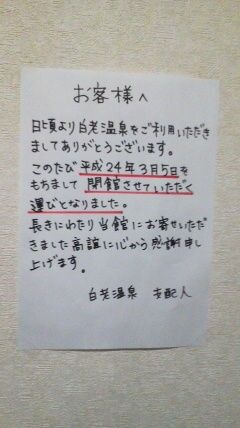 お客様へ
日頃より白老温泉をご利用いただき
ましてありがとうございます。
このたび平成24年3月5日を
もちまして閉館させていただく
運びとなりました。
長きにわたり当館にお寄せいただ
きました高誼に心から感謝申し
上げます。
白老温泉 支配人